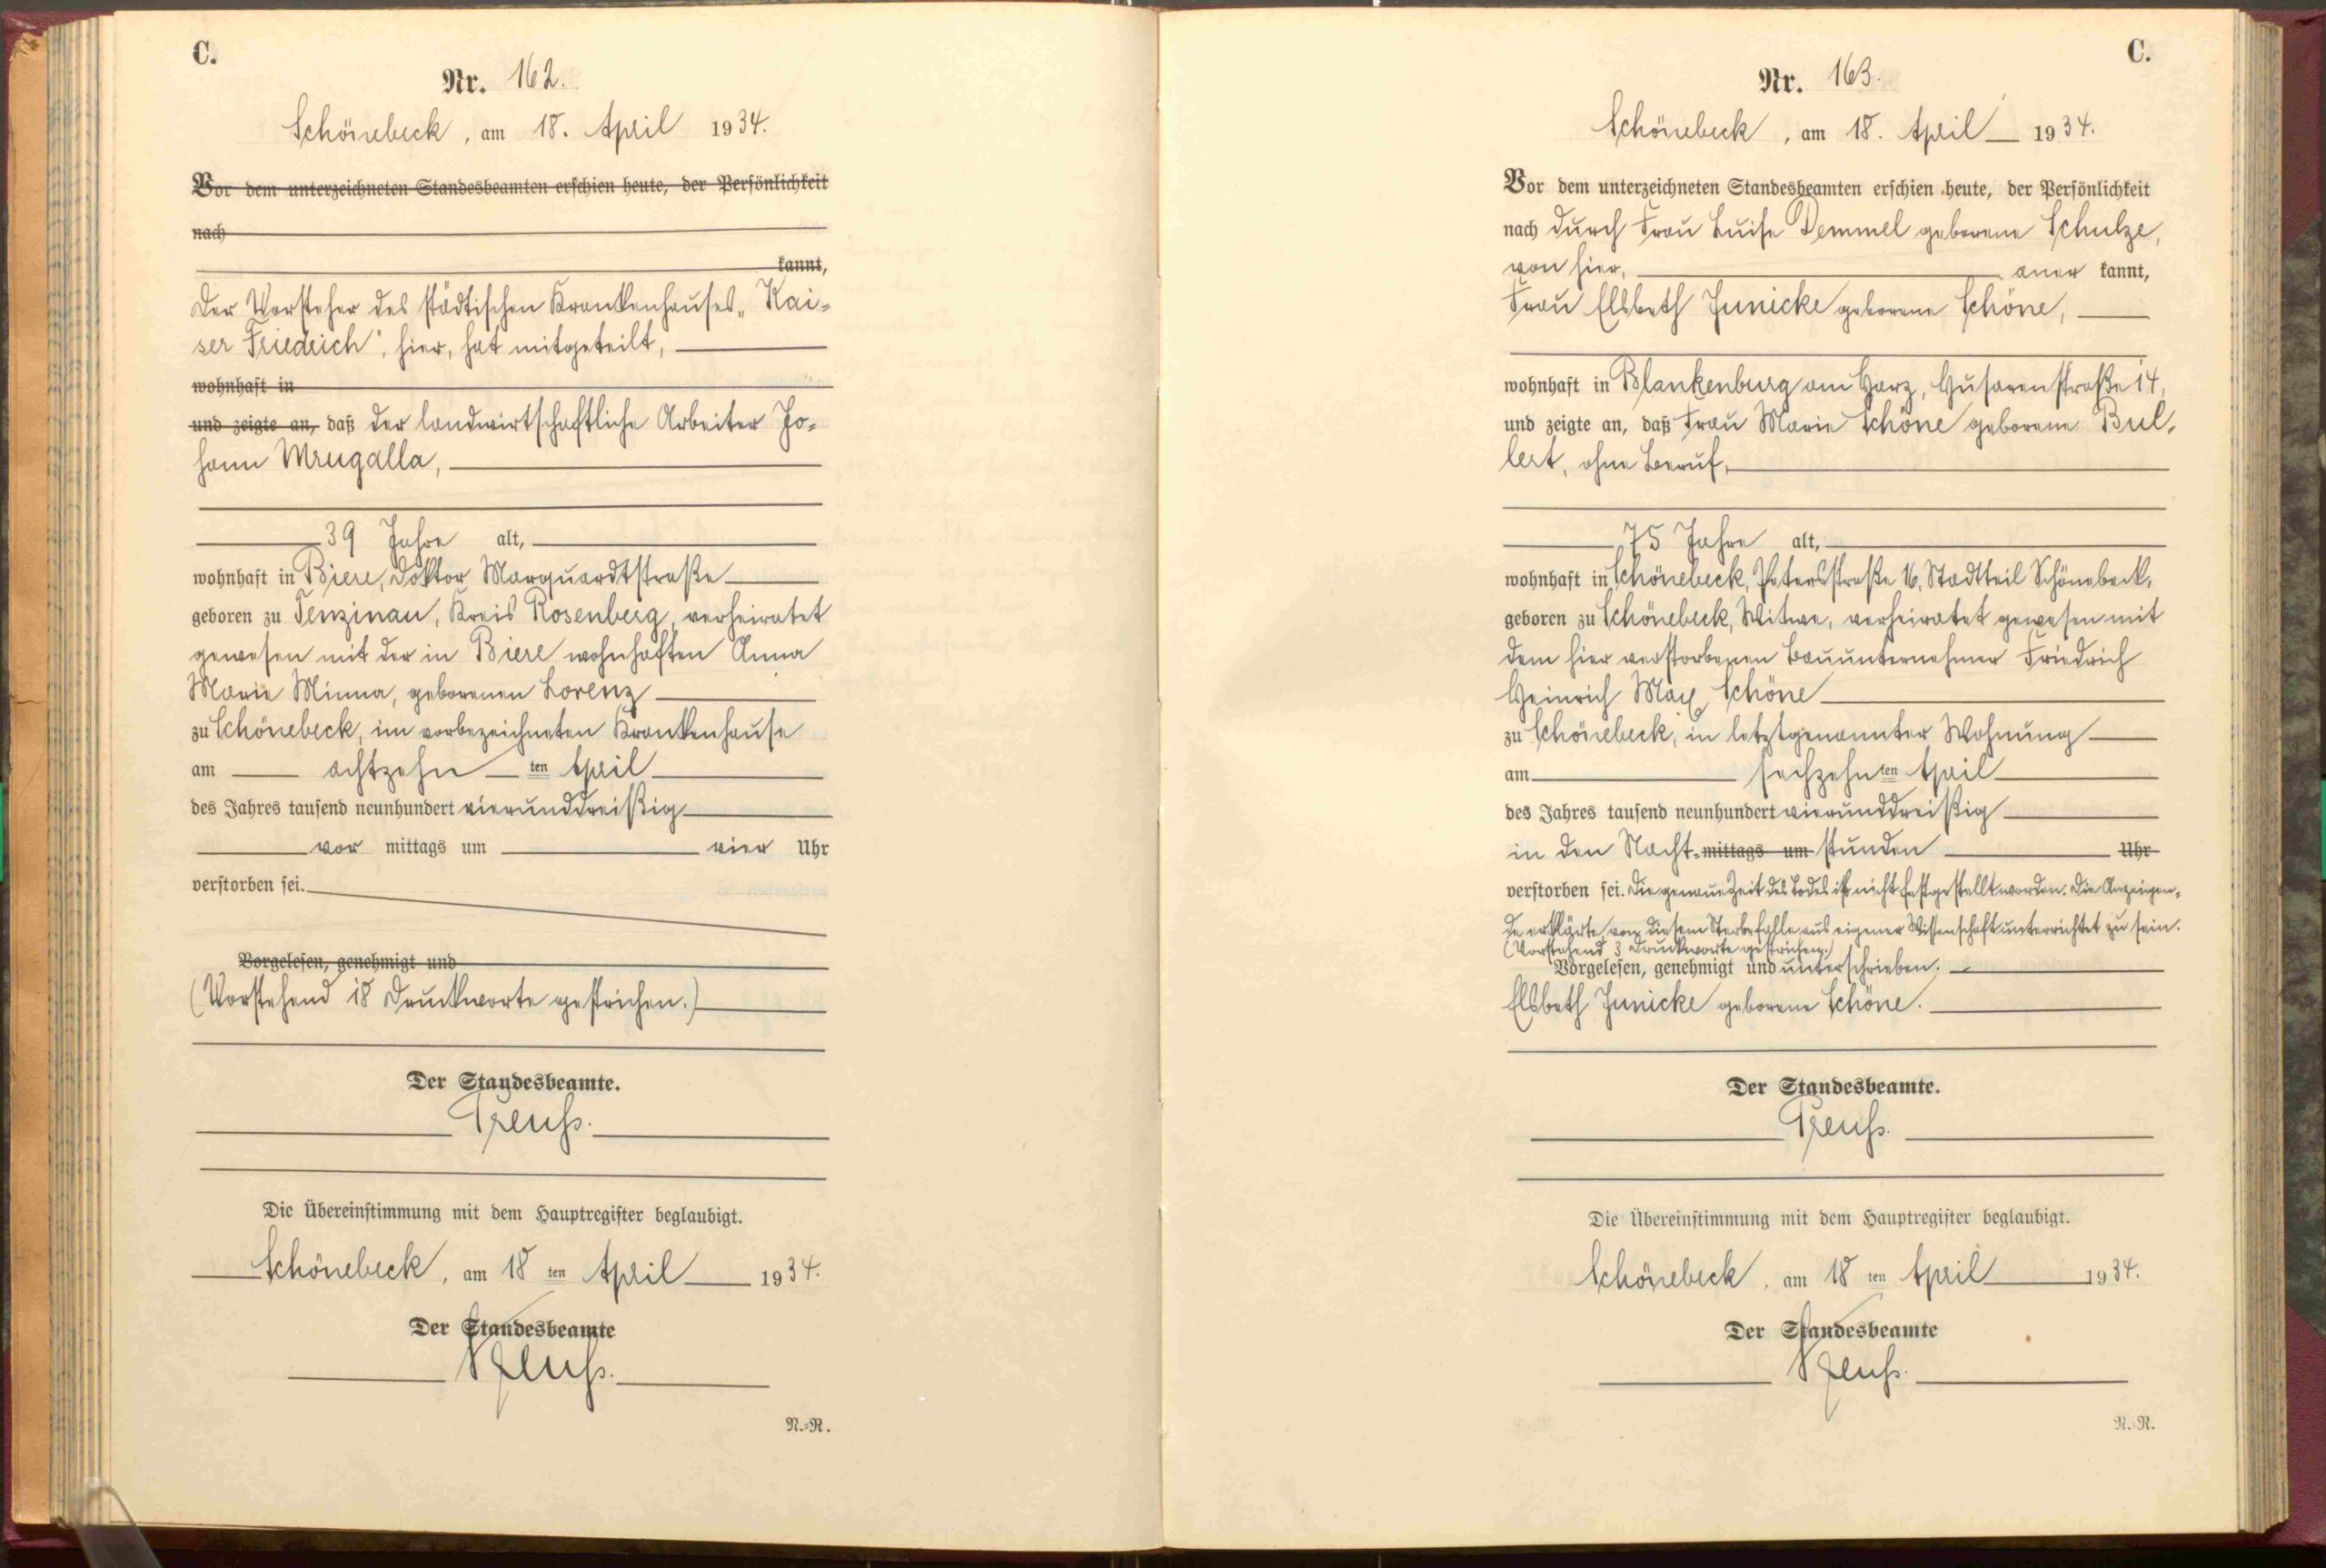 C.
Nr. 162.
Schönebeck, am 18. April 1934.
Vor dem unterzeichneten Standesbeamten erschien heute, der Persönlichkeit
nach
kannt,
Der Vorsteher des städtischen Krankenhauses „Kai-
ser Friedrich", hier, hat mitgeteilt,
wohnhaft in
und zeigte an, daß der landwirtschaftliche Arbeiter Jo-
hann Mrugalla,
39 Jahre alt,
wohnhaft in Biere, Doktor Marquardtstraße
geboren zu Tenzinau, Kreis Rosenberg, verheiratet
gewesen mit der in Biere wohnhaften Anna
Marie Minna, geborenen Lorenz
zu Schönebeck, im vorbezeichneten Krankenhause
am achtzehn ten April
des Jahres tausend neunhundert vierunddreißig
vor mittags um vier Uhr
verstorben sei.
Vorgelesen, genehmigt und
(Vorstehend 18 Druckworte gestrichen.)
Der Standesbeamte.
Preuß.
Die Übereinstimmung mit dem Hauptregister beglaubigt.
Schönebeck, am 18 ten April 1934.
Der Standesbeamte
Preuß.
N.-R.
C.
Nr. 163.
Schönebeck, am 18. April 1934.
Vor dem unterzeichneten Standesbeamten erschien heute, der Persönlichkeit
nach durch Frau Luise Demmel geborene Schulze,
von hier, aner kannt,
Frau Elsbeth Junicke geborene Schöne,
wohnhaft in Blankenburg am Harz, Husarenstraße 14,
und zeigte an, daß Frau Marie Schöne geborene Bul-
lert, ohne Beruf,
75 Jahre alt,
wohnhaft in Schönebeck, Petersstraße 16, Stadtteil Schönebeck,
geboren zu Schönebeck, Witwe, verheiratet gewesen mit
dem hier verstorbenen Bauunternehmer Friedrich
Heinrich Max Schöne
zu Schönebeck, in letztgenannter Wohnung
am sechzehn ten April
des Jahres tausend neunhundert vierunddreißig
in den Nacht- mittags um stunden Uhr
verstorben sei. Die genaue Zeit des Todes ist nicht festgestellt worden. Die Anzeigen-
de erklärte, von diesem Sterbefalle aus eigener Wissenschaft unterrichtet zu sein.
(Vorstehend 3 Druckworte gestrichen.)
Vorgelesen, genehmigt und unterschrieben.
Elsbeth Junicke geborene Schöne.
Der Standesbeamte.
Preuß.
Die Übereinstimmung mit dem Hauptregister beglaubigt.
Schönebeck, am 18 ten April 1934.
Der Standesbeamte
Preuß.
N.-R.